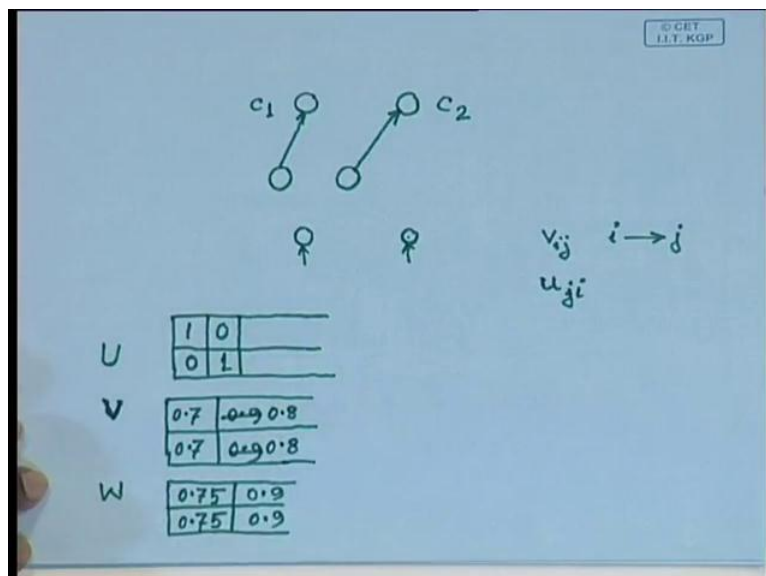 © CET
I.I.T. KGP
C1 C2
Vij i → j
uji
1 0
U 0 1
V 0.7 0.8
0.7 0.8
W 0.75 0.9
0.75 0.9